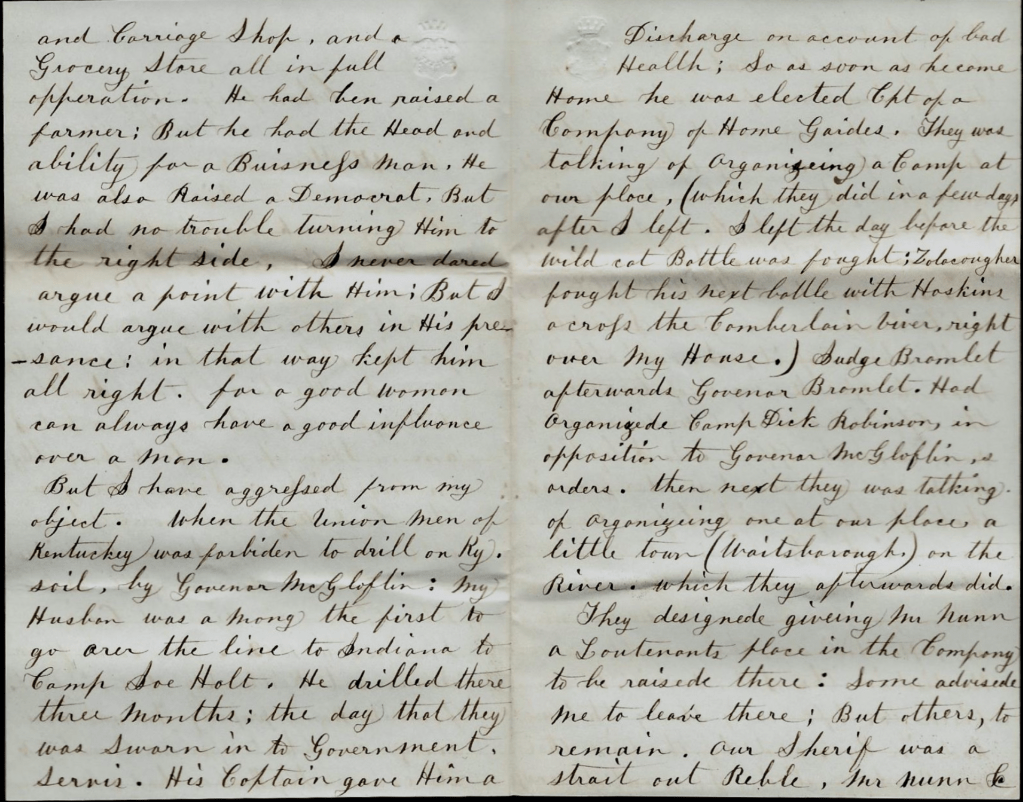 and Carriage Shop, and a
Grocery Store all in full
opperation. He had ben raised a
farmer; But he had the Head and
ability for a Buisness man. He
was also Raised a Democrat. But
I had no trouble turning Him to
the right side. I never dared
argue a point with Him; But I
would argue with others in His pre-
-sance; in that way kept him
all right. for a good woman
can always have a good influance
over a man.
But I have aggressed from my
object. When the Union men of
Kentuckey was forbiden to drill on Ky.
soil, by Govenor McGloflin: my
Husban was a mong the first to
go over the line to Indiana to
Camp Joe Holt. He drilled there
three months; the day that they
was Sworn in to Government.
servis. His Captain gave Him a
Discharge on account of bad
Health; So as soon as he come
Home he was elected Cpt of a
Company of Home Gaides. They was
talking of Organizeing a Camp at
our place, (which they did in a few days
after I left. I left the day before the
wild cat Battle was fought; Zolacougher
fought his next battle with Hoskins
across the Comberlain river, right
over My House.) Judge Bromlet
afterwards Govenor Bromlet. Had
Organizede Camp Dick Robinson, in
opposition to Govenor McGloflin,s
orders. then next they was talking
of organizeing one at our place, a
little town (Waitsborough.) on the
River. which they afterwards did.
They designede giveing Mr Nunn
a Loutenants place in the Company
to be raisede there: Some advisede
me to leave there; But others, to
remain. Our Sherif was a
strait out Reble, Mr Nunn &